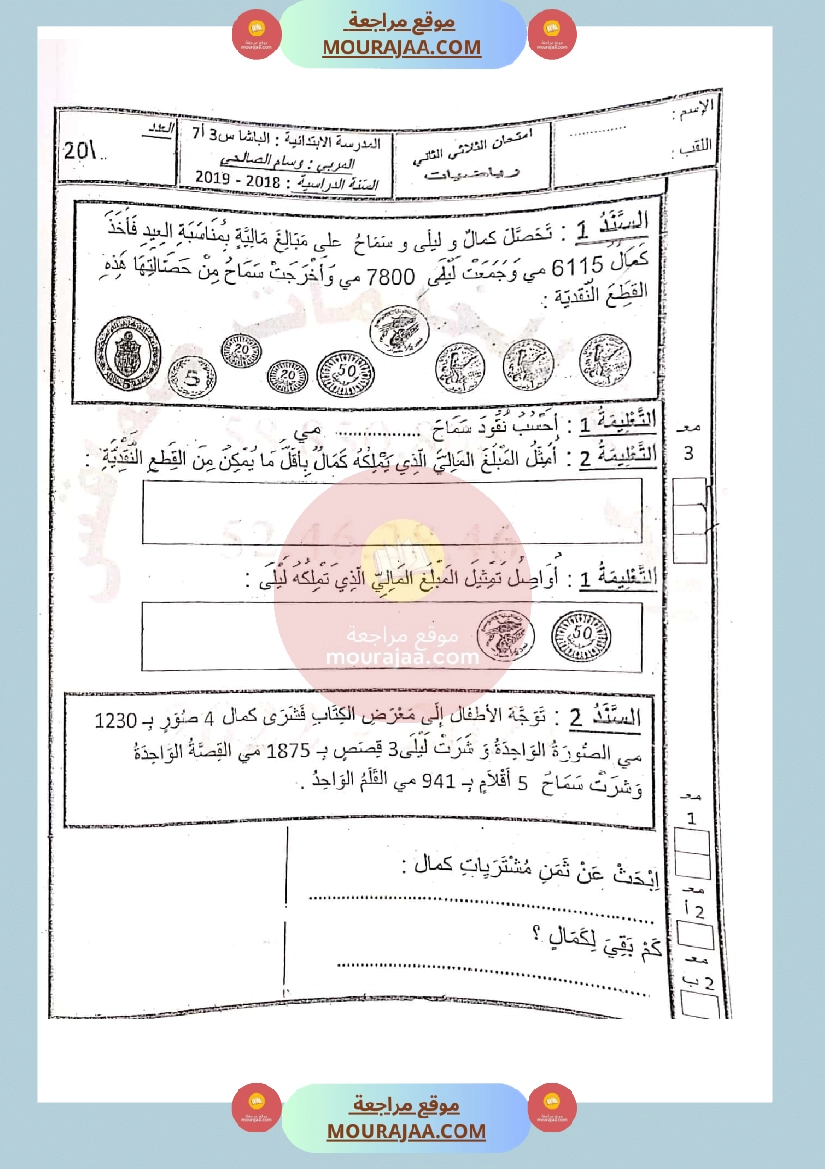 موقع مراجعة
MOURAJAA.COM
الإسم : ..............
اللقب :
امتحان الثلاثي الثاني
رياضيات
المدرسة الابتدائية : الباشا س3 أ7
المربي : وسام الصالحي
السنة الدراسية : 2018 - 2019
العدد
20\..
السَّنَدُ 1 : تَحَصَّلَ كمالٌ و ليلى و سَمَاحُ على مَبَالِغَ مَالِيَّةٍ بِمُنَاسَبَةِ العِيدِ فَأَخَذَ
كَمَالُ 6115 مي وَجَمَعَتْ لَيْلَى 7800 مي وَأَخْرَجَتْ سَمَاحُ مِنْ حَصَّالَتِهَا هَذِهِ
القِطَعَ النَّقْدِيّة :
5 20 20 50
التَّعْلِيمَةُ 1 : أَحْسُبُ نُقُودَ سَمَاحَ .................. مي
التَّعْلِيمَةُ 2 : أُمَثِّلُ المَبْلَغَ المَالِيَّ الَّذِي يَمْلِكُهُ كَمَالُ بِأَقَلَّ مَا يُمْكِنُ مِنَ القِطَعِ النَّقْدِيَّةِ :
مع
3
التَّعْلِيمَةُ 1 : أُوَاصِلُ تَمْثِيلَ المَبْلَغِ المَالِيِّ الَّذِي تَمْلِكُهُ لَيْلَى :
50
موقع مراجعة
mourajaa.com
السَّنَدُ 2 : تَوَجَّهَ الأطفال إِلَى مَعْرَضِ الكِتَابِ فَشَرَى كمال 4 صُوَرٍ بِـ 1230
مي الصُّورَةُ الوَاحِدَةُ وَ شَرَتْ لَيْلَى3 قِصَصٍ بِـ 1875 مي القِصَّةُ الوَاحِدَةُ
وَشَرَتْ سَمَاحُ 5 أَقْلَامٍ بِـ 941 مي القَلَمُ الوَاحِدُ .
مع
1
اِبْحَثْ عَنْ ثَمَنِ مُشْتَرَيَاتِ كمال :
مع
2 أ
كَمْ بَقِيَ لِكَمَالٍ ؟
مع
2 ب
موقع مراجعة
MOURAJAA.COM